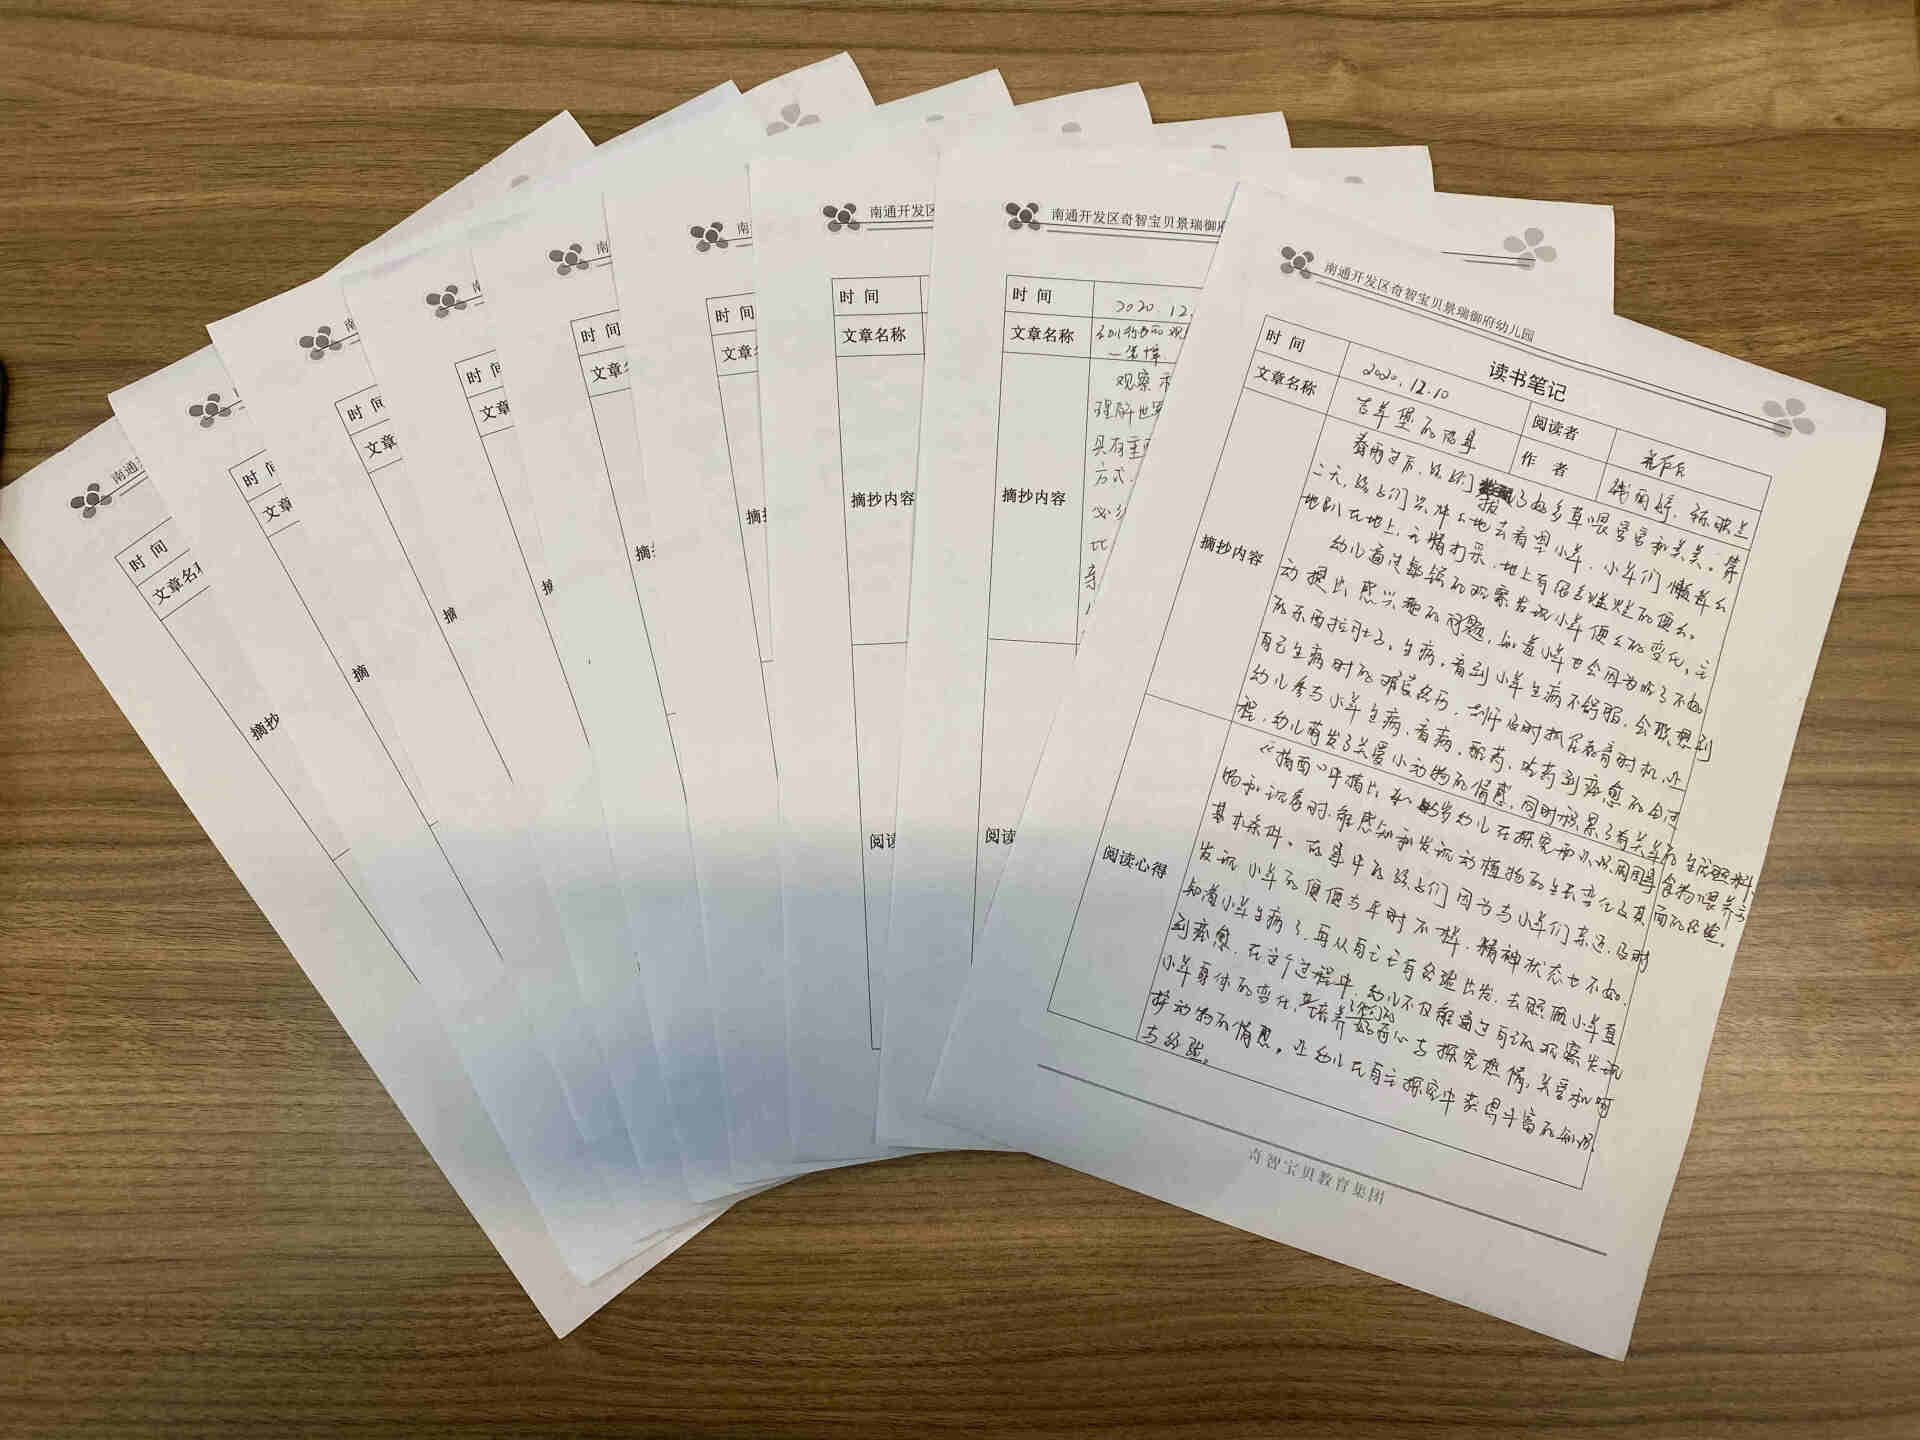 南通开
时 间
文章名称
摘抄
时 间
文章
摘
南
时 间
文章
摘
南
时 间
文章
摘
南
时 间
文章
摘
南
时 间
文章
摘
南通开发区
时 间
文章名称
摘抄内容
阅读
南通开发区奇智宝贝景瑞御府
时 间
2020.12.
文章名称
摘抄内容
观察
理解世界
方式.
阅读
南通开发区奇智宝贝景瑞御府幼儿园
读书笔记
时 间
2020.12.10
阅读者
文章名称
吉羊堡的故事
作 者
摘抄内容
春雨过后,孩子们拔了好多草喂雪雪和美美。第
二天,孩子们兴冲冲地去看望小羊,小羊们懒洋洋
地趴在地上,无精打采,地上有很多烂烂的便便。
幼儿通过敏锐的观察发现小羊便便的变化,主
动提出感兴趣的问题,知道小羊也会因为吃了不好
的东西拉肚子、生病,看到小羊生病不舒服,会联想到
自己生病时的难受经历,教师及时抓住教育时机,让
幼儿参与小羊生病、看病、配药、吃药到痊愈的全过
程,幼儿萌发了关爱小动物的情感,同时积累了有关羊的生活照料、
食物喂养方
面的经验。
阅读心得
《指南》中指出
幼儿在探究和认识周围事
物和现象时,能感知和发现动植物的生长变化及其
基本条件。故事中的孩子们因为与小羊们亲近,及时
发现小羊的便便与平时不样,精神状态也不好,
知道小羊生病了,再从自己已有经验出发,去照顾小羊直
到痊愈,在这个过程中,幼儿不仅能通过自己的观察发现
小羊身体的变化,培养他们的好奇心与探究热情,关爱和呵
护动物的情感,让幼儿在自主探究中获得丰富的知识
与经验。
奇智宝贝教育集团